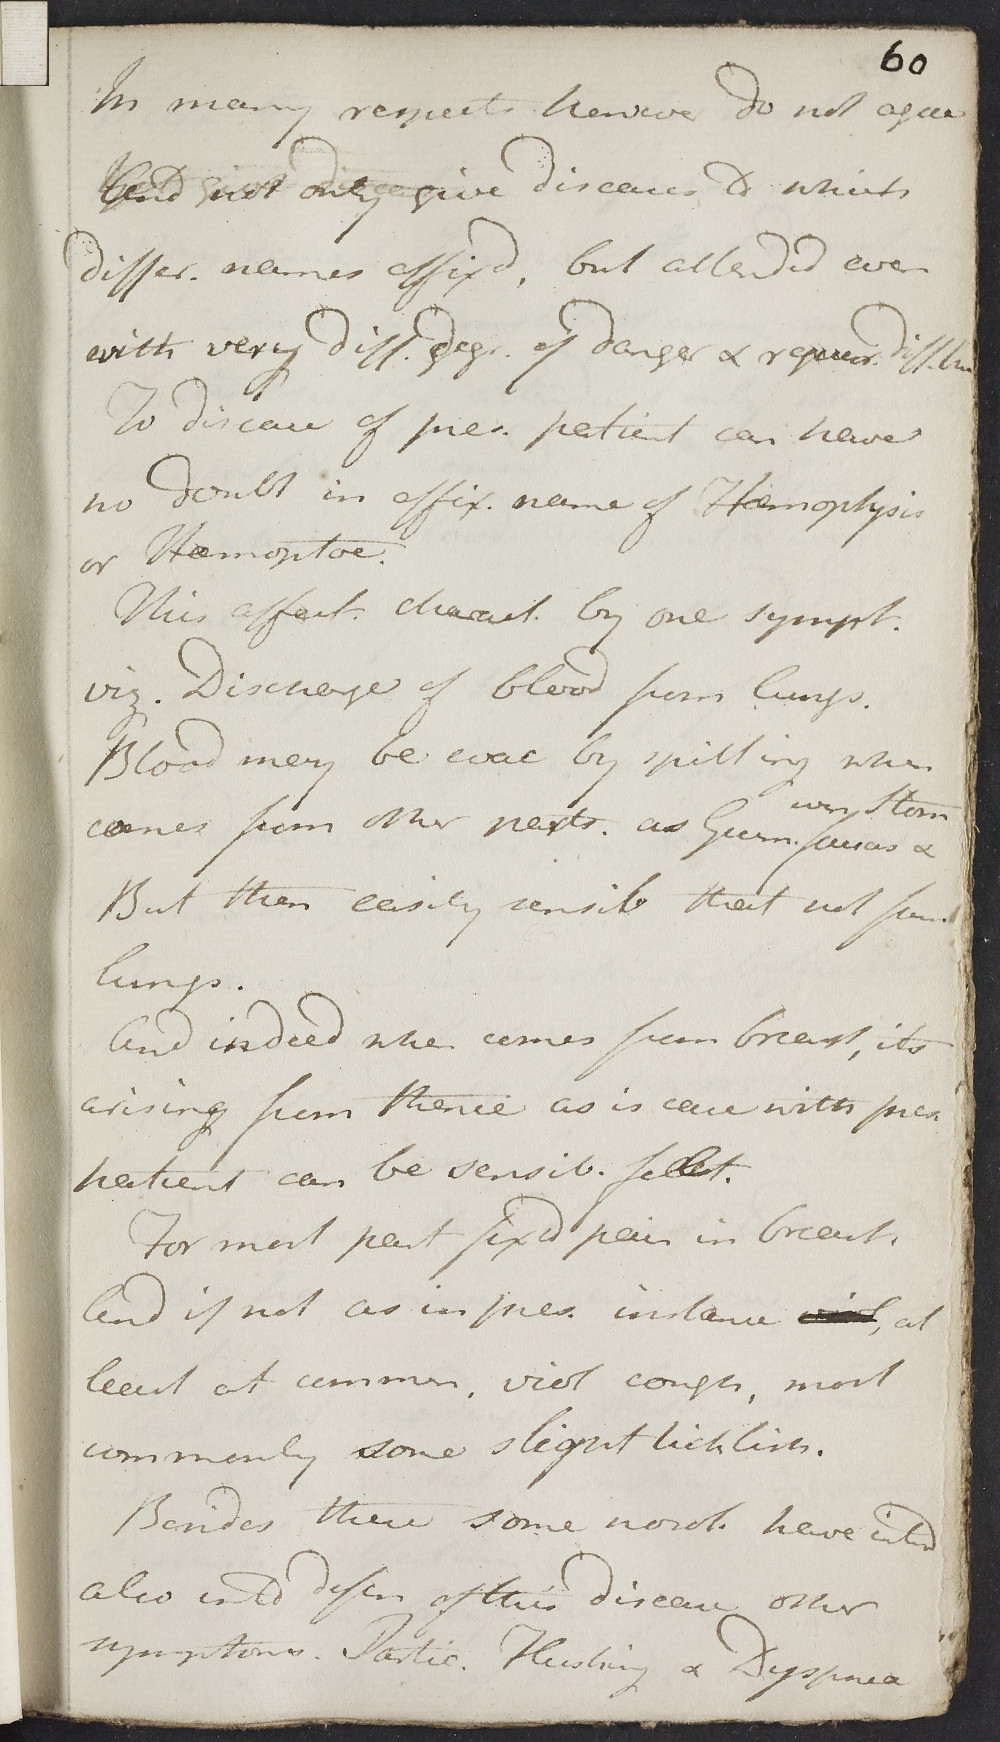 60
In many respects however do not agree
And not only give diseases to which
differ. names affixd, but attended even
with very diff. degr. of danger & requir. diff.
To disease of pres. patient can have
no doubt in affix. name of Hæmophysis
or Hæmoptoe.
This affect. charact. by one sympt.
viz. Discharge of blood from lungs.
Blood may be evac by spitting when
even Stom
comes from other parts. as Gum. fauces &
But then easily sensib that not from
lungs.
And indeed when comes from breast, its
arising from thence as is case with pres
patient can be sensib. felt.
For most part fixd pain in breast.
And if not as in pres. instance, at
least at common, viol cough, most
commonly some slight ticklish.
Besides these some nosol. have
also defin of this disease other
symptoms. Partic. Flushing & Dyspnea